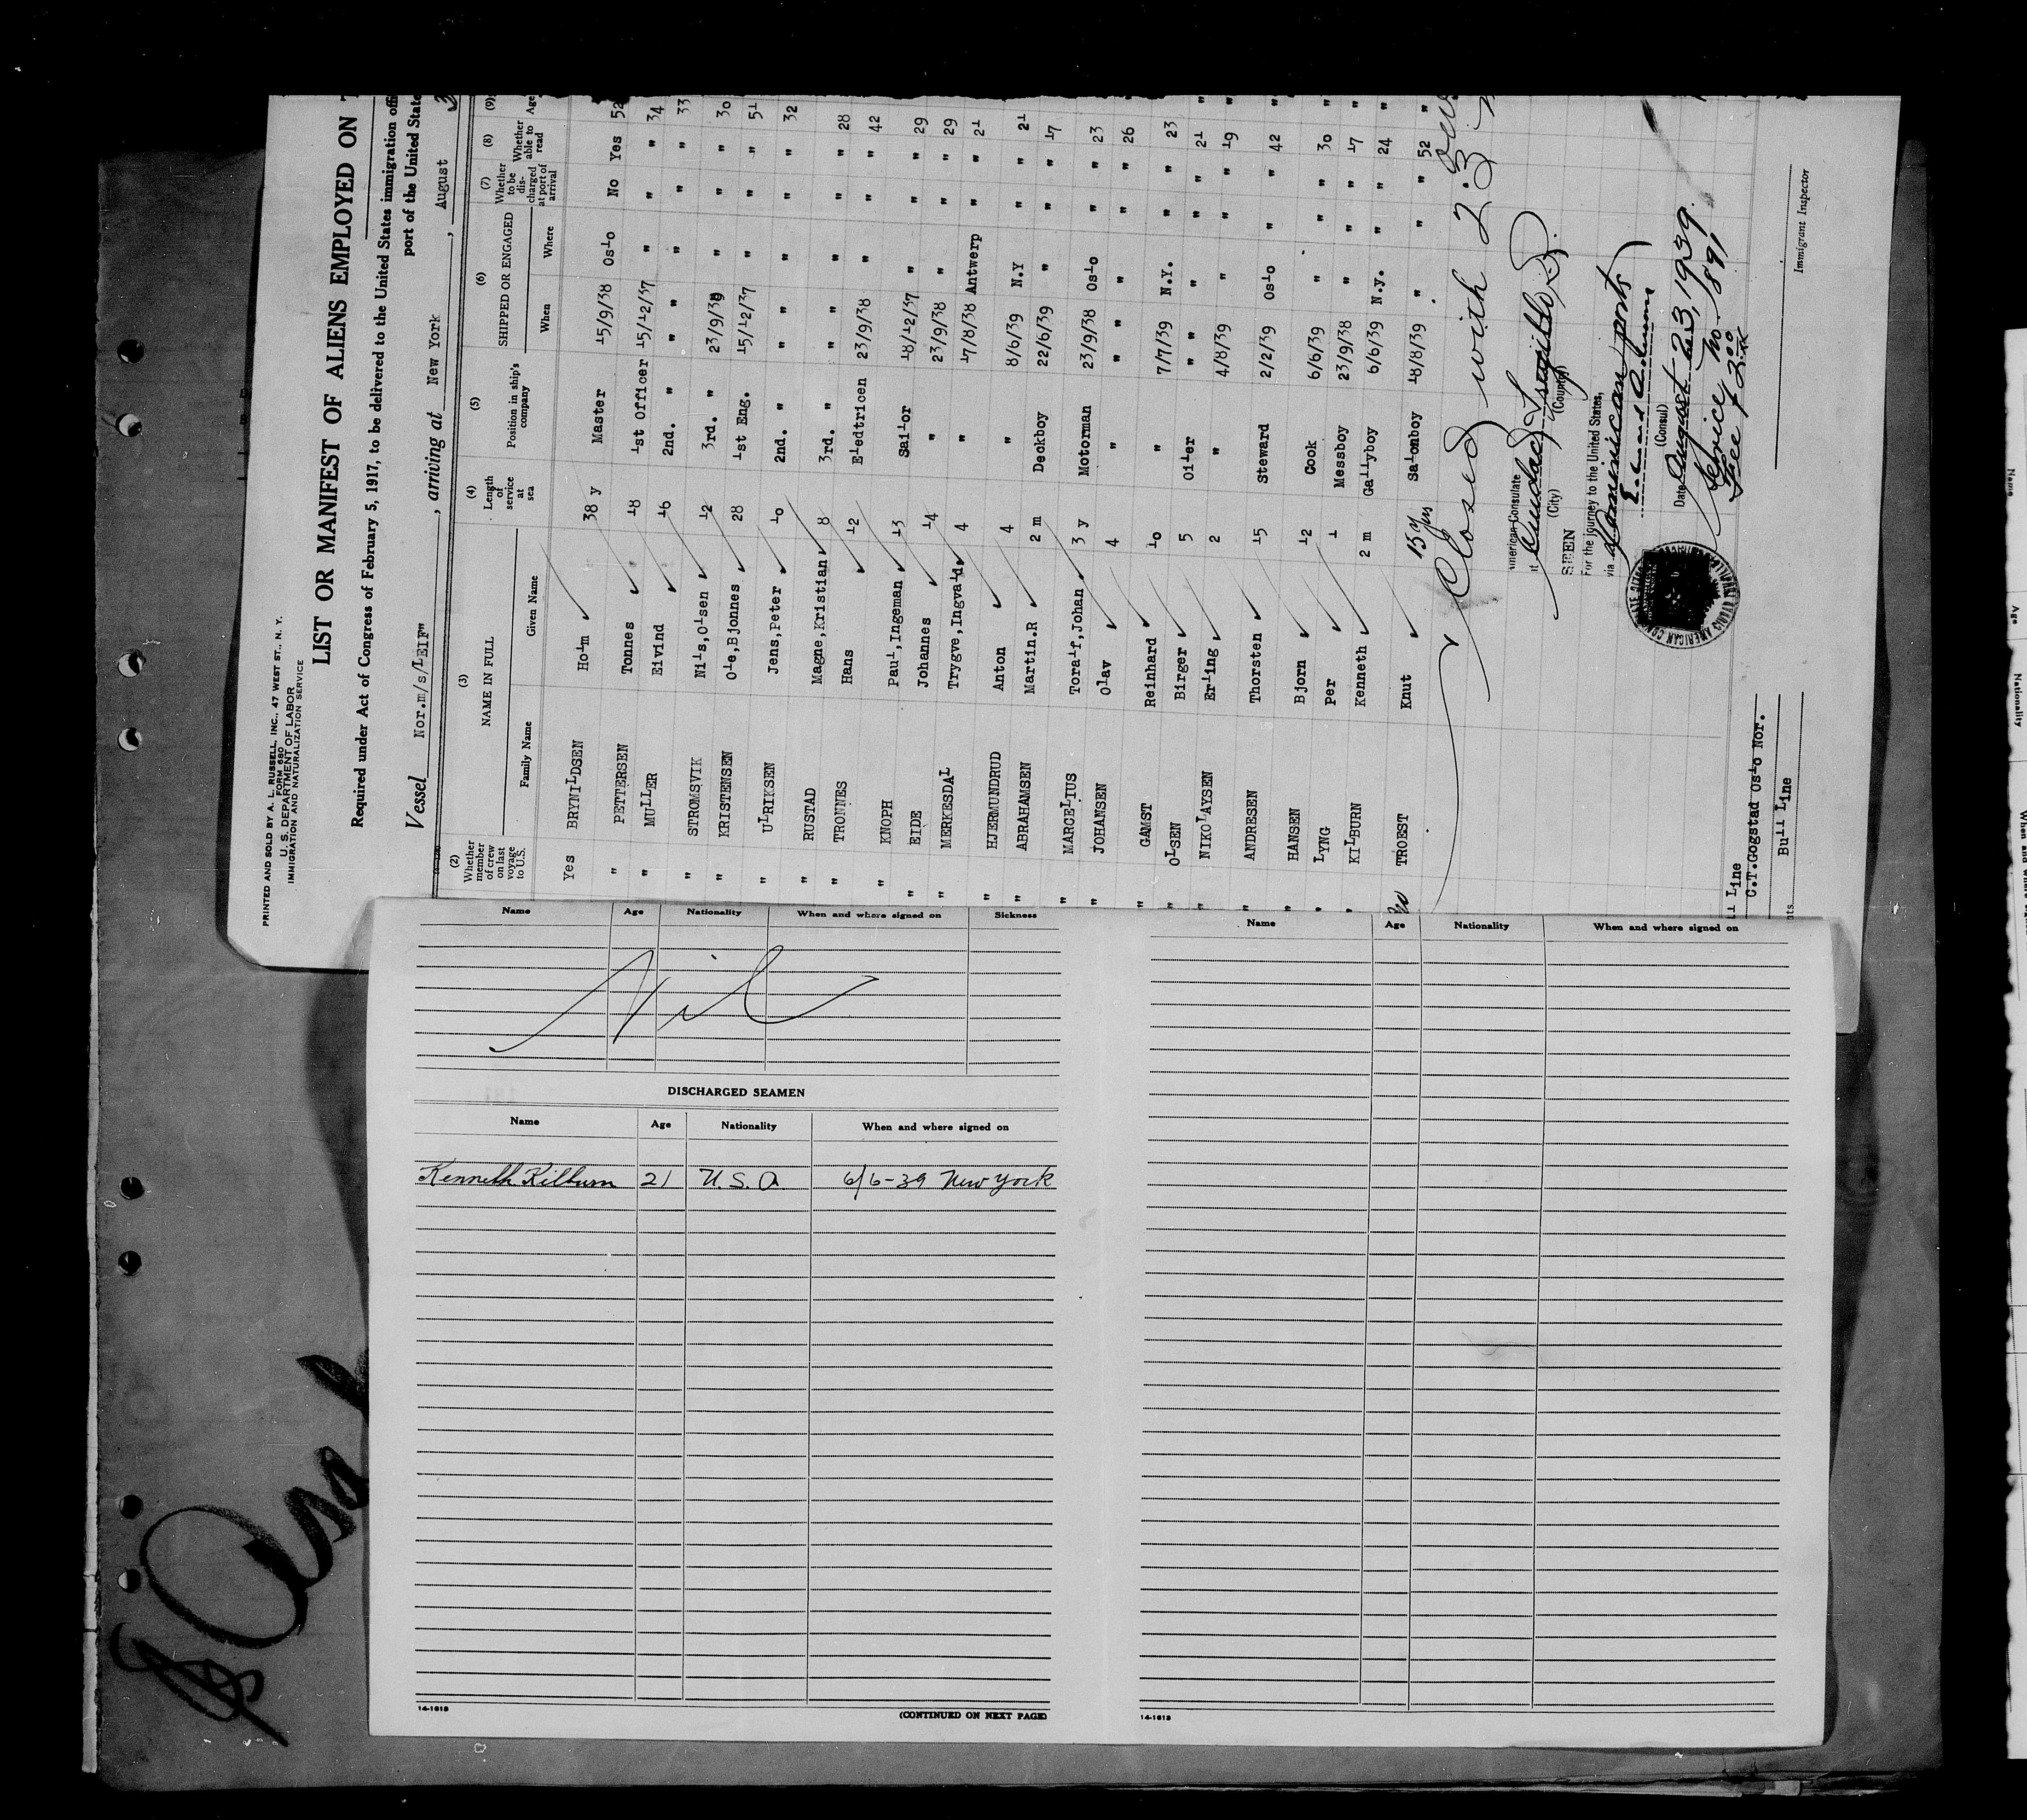 PRINTED AND SOLD BY A. L. RUSSELL, INC., 47 WEST ST., N. Y.
FORM 680
U. S. DEPARTMENT OF LABOR
IMMIGRATION AND NATURALIZATION SERVICE
LIST OR MANIFEST OF ALIENS EMPLOYED ON
Required under Act of Congress of February 5, 1917, to be delivered to the United States immigration
port of the United State
Vessel Nor.m/s/LEIF" , arriving at New York , August 3
(2) (3) (4) (5) (6) (7) (8) (9)
Whether member of crew on last voyage to U.S. NAME IN FULL Length of service at sea Position in ship's company SHIPPED OR ENGAGED Whether to be discharged at port of arrival Whether able to read Age
Family Name Given Name When Where
Yes BRYNILDSEN Holm 38 y Master 15/9/38 Oslo No Yes 52
" PETTERSEN Tonnes 18 1st Officer 15/12/37 " " " 34
" MULLER Eivind 16 2nd. " " " " " " 33
" STROMSVIK Nils,Olsen 12 3rd. " 23/9/38 " " " 30
" KRISTENSEN Ole,Bjonnes 28 1st Eng. 15/12/37 " " " 51
" ULRIKSEN Jens,Peter 10 2nd. " " " " " 32
" RUSTAD Magne,Kristian 8 3rd. " " " " " 28
" TRONNES Hans 12 Eledtricen 23/9/38 " " " 42
" KNOPH Paul,Ingeman 13 Sailor 18/12/37 " " " 29
" EIDE Johannes 14 " 23/9/38 " " " 29
" MERKESDAL Trygve,Ingvald 4 " 17/8/38 Antwerp " " 21
" HJERMUNDRUD Anton 4 " 8/6/39 N.Y " " 21
" ABRAHAMSEN Martin.R 2 m Deckboy 22/6/39 " " " 17
" MARCELIUS Toralf,Johan 3 y Motorman 23/9/38 Oslo " " 23
" JOHANSEN Olav 4 " " " " " " 26
" GAMST Reinhard 10 " 7/7/39 N.Y. " " 23
" OLSEN Birger 5 Oiler " " " " " 21
" NIKOLAYSEN Erling 2 " 4/8/39 " " " 19
" ANDRESEN Thorsten 15 Steward 2/2/39 Oslo " " 42
" HANSEN Bjorn 12 Cook 6/6/39 " " " 30
" LYNG Per 1 Messboy 23/9/38 " " " 17
" KILBURN Kenneth 2 m Gallyboy 6/6/39 N.Y. " " 24
No TROEST Knut 15 yrs Salonboy 18/8/39 " " " 52
Closed with 23
American Consulate
at Ciudad Trujillo D.
(City) (Country)
SEEN
For the journey to the United States,
via Dominican ports
(Consul)
Date August 23, 1939.
Service No. 1891
Fee $ 2.00
AMERICAN CONSULATE
Immigrant Inspector
Line
C.T.Gogstad Oslo Nor.
Bull Line
Name Age Nationality When and where signed on Sickness
Nil
DISCHARGED SEAMEN
Name Age Nationality When and where signed on
Kenneth Kilburn 21 U.S.A. 6/6-39 New York
14-1613
(CONTINUED ON NEXT PAGE)
Name Age Nationality When and where signed on
14-1613
Name
Age
Nationality